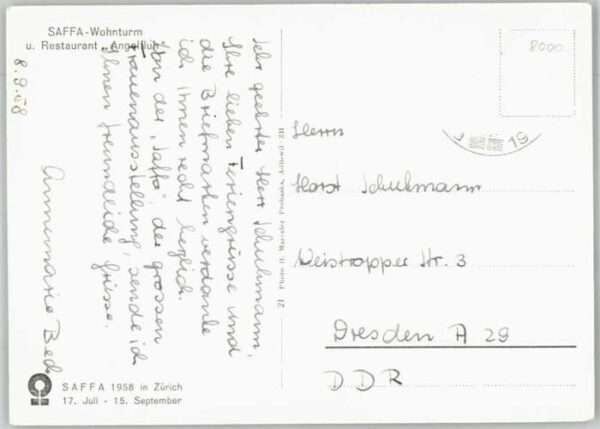 SAFFA-Wohnturm
u. Restaurant „Angelfluh"
8.9.58
Sehr geehrter Herr Schuhmann,
Ihre lieben Feriengrüsse und
die Briefmarken verdanke
ich Ihnen recht herzlich.
Von der „Saffa", der grossen
Frauenausstellung, sende ich
Ihnen freundliche Grüsse.
Annemarie
21 Photo H.
8000
19
Herrn
Horst Schuhmann
Weistropper Str. 3
Dresden A 29
DDR
SAFFA 1958 in Zürich
17. Juli - 15. September